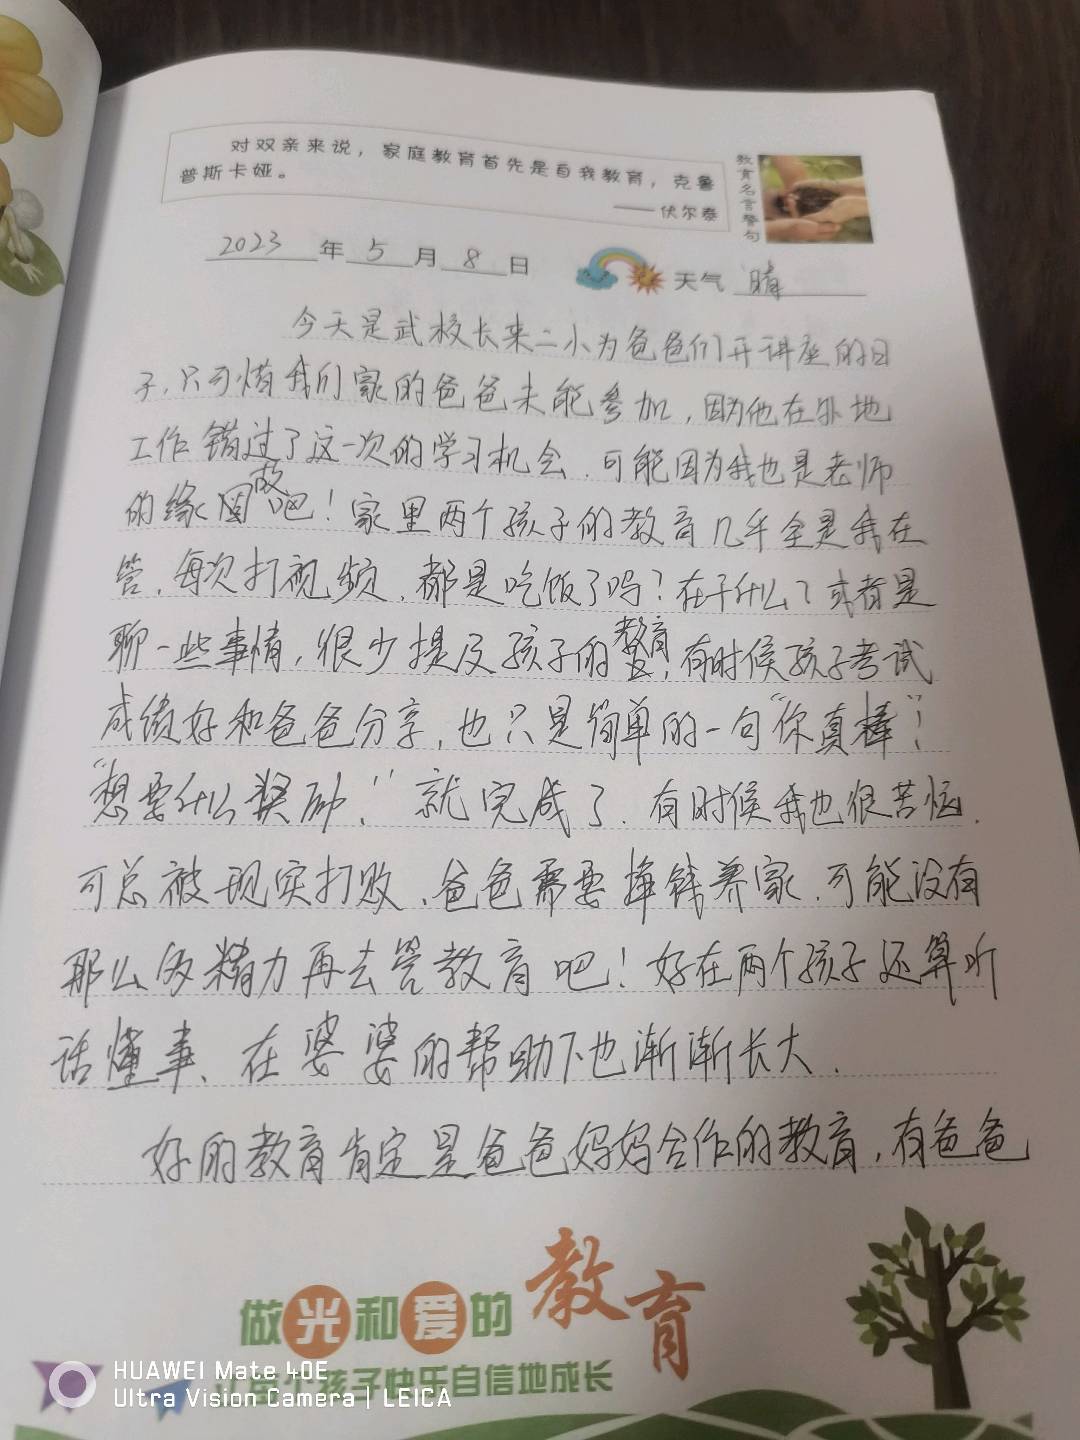 对双亲来说，家庭教育首先是自我教育，克鲁
普斯卡娅。
——伏尔泰
教育名言警句
2023年5月8日 天气 晴
今天是武校长来二小为爸爸们开讲座的日
子，只可惜我们家的爸爸未能参加，因为他在外地
工作错过了这一次的学习机会．可能因为我也是老师
的缘故吧！家里两个孩子的教育几乎全是我在
管，每次打视频，都是吃饭了吗？在干什么？或者是
聊一些事情，很少提及孩子的教育，有时候孩子考试
成绩好和爸爸分享，也只是简单的一句“你真棒”！
“想要什么奖励！”就完成了．有时候我也很苦恼．
可总被现实打败、爸爸需要挣钱养家．可能没有
那么多精力再去管教育吧！好在两个孩子还算听
话懂事、在婆婆的帮助下也渐渐长大．
好的教育肯定是爸爸妈妈合作的教育，有爸爸
做光和爱的教育
孩子快乐自信地成长
HUAWEI Mate 40E
Ultra Vision Camera | LEICA